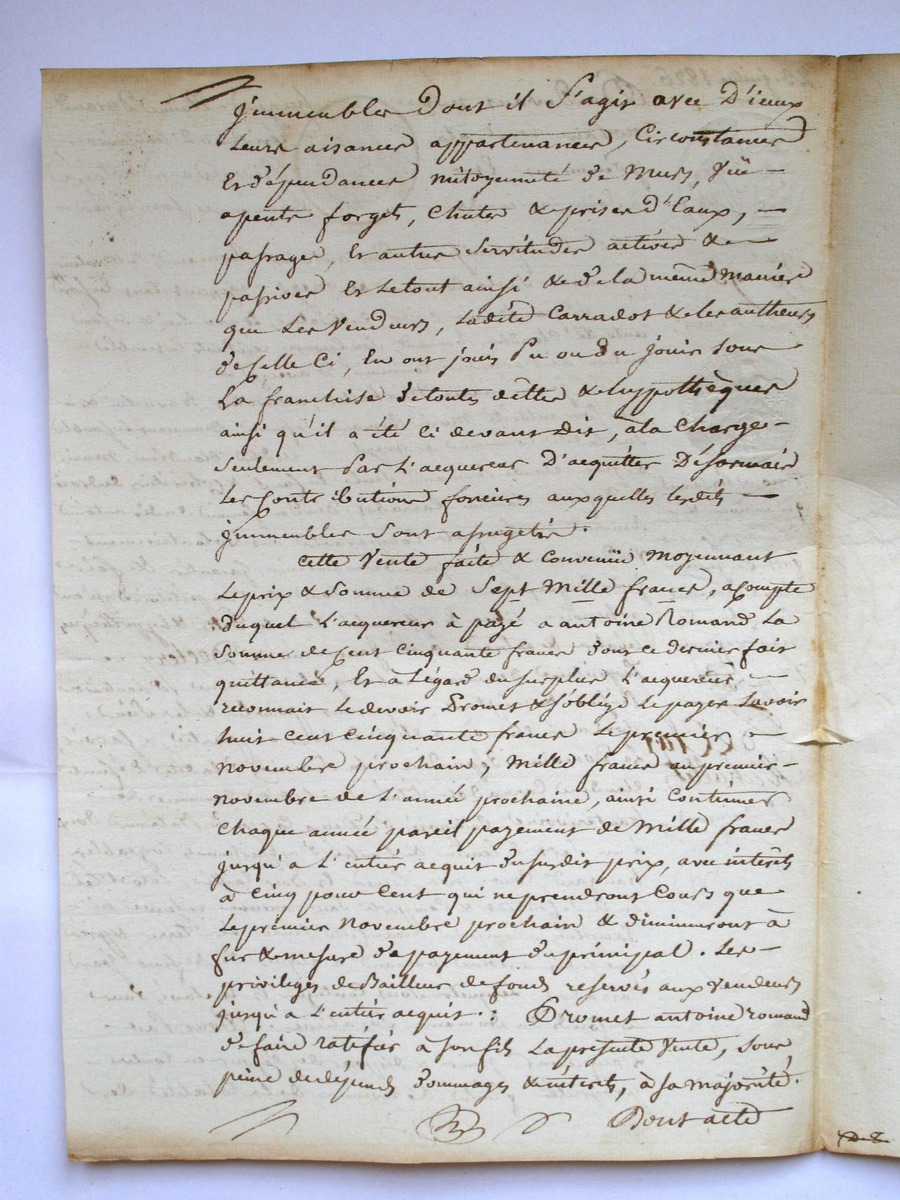 jmmeubles Dont il S'agit avec D'iceux
Leurs aisances appartenances, Circonstances
Et dépendances mitoyenneté de Murs, Vüe —
apents forgets, Chutes & prises d'Eaux, —
passages, Et autres Servitudes actives & —
passives Et Le tout ainsi & de la même Manière
que Les Vendeurs, Ladite Carradot & les autheurs
de Celle Ci, En ont jouis Pu ou du jouir Sous
La franchise de toutes dettes & hyppothèques
ainsi qu'il a été Ci devant Dit, à la Charge —
Seulement Par L'acquereur D'acquitter Désormais
Les Contributions foncieres auxquelles lesdits —
jmmeubles Sont assugetis.
Cette Vente faite & Convenüe Moyennant
Le prix & Somme de Sept Mille francs, a Compte
duquel L'acquereur à payé a antoine Romand La
Somme de Cent Cinquante francs dont ce dernier fait
quittance, Et à L'égard du Surplus L'acquereur —
reconnait Le devoir Promet & S'oblige Le payer Savoir
huit Cent Cinquante francs Le premier —
Novembre prochain, Mille francs au premier —
Novembre de L'année prochaine, ainsi Continuer
Chaque année pareil payement de Mille francs
jusqu'a L'entier acquit du Susdit prix, avec intérêts
à Cinq pour Cent qui ne prendront Cours que
Le premier Novembre prochain & diminueront à
fur & mesure da payement du prinipal. Les —
privileges de Bailleur de fonds reservés aux Vendeurs
jusqu'a L'entier acquit.: Promet antoine romand
de faire ratifier à Son fils La présente Vente, Sous
peine de dépends dommages & intérets, à Sa majorité.
Dont acte